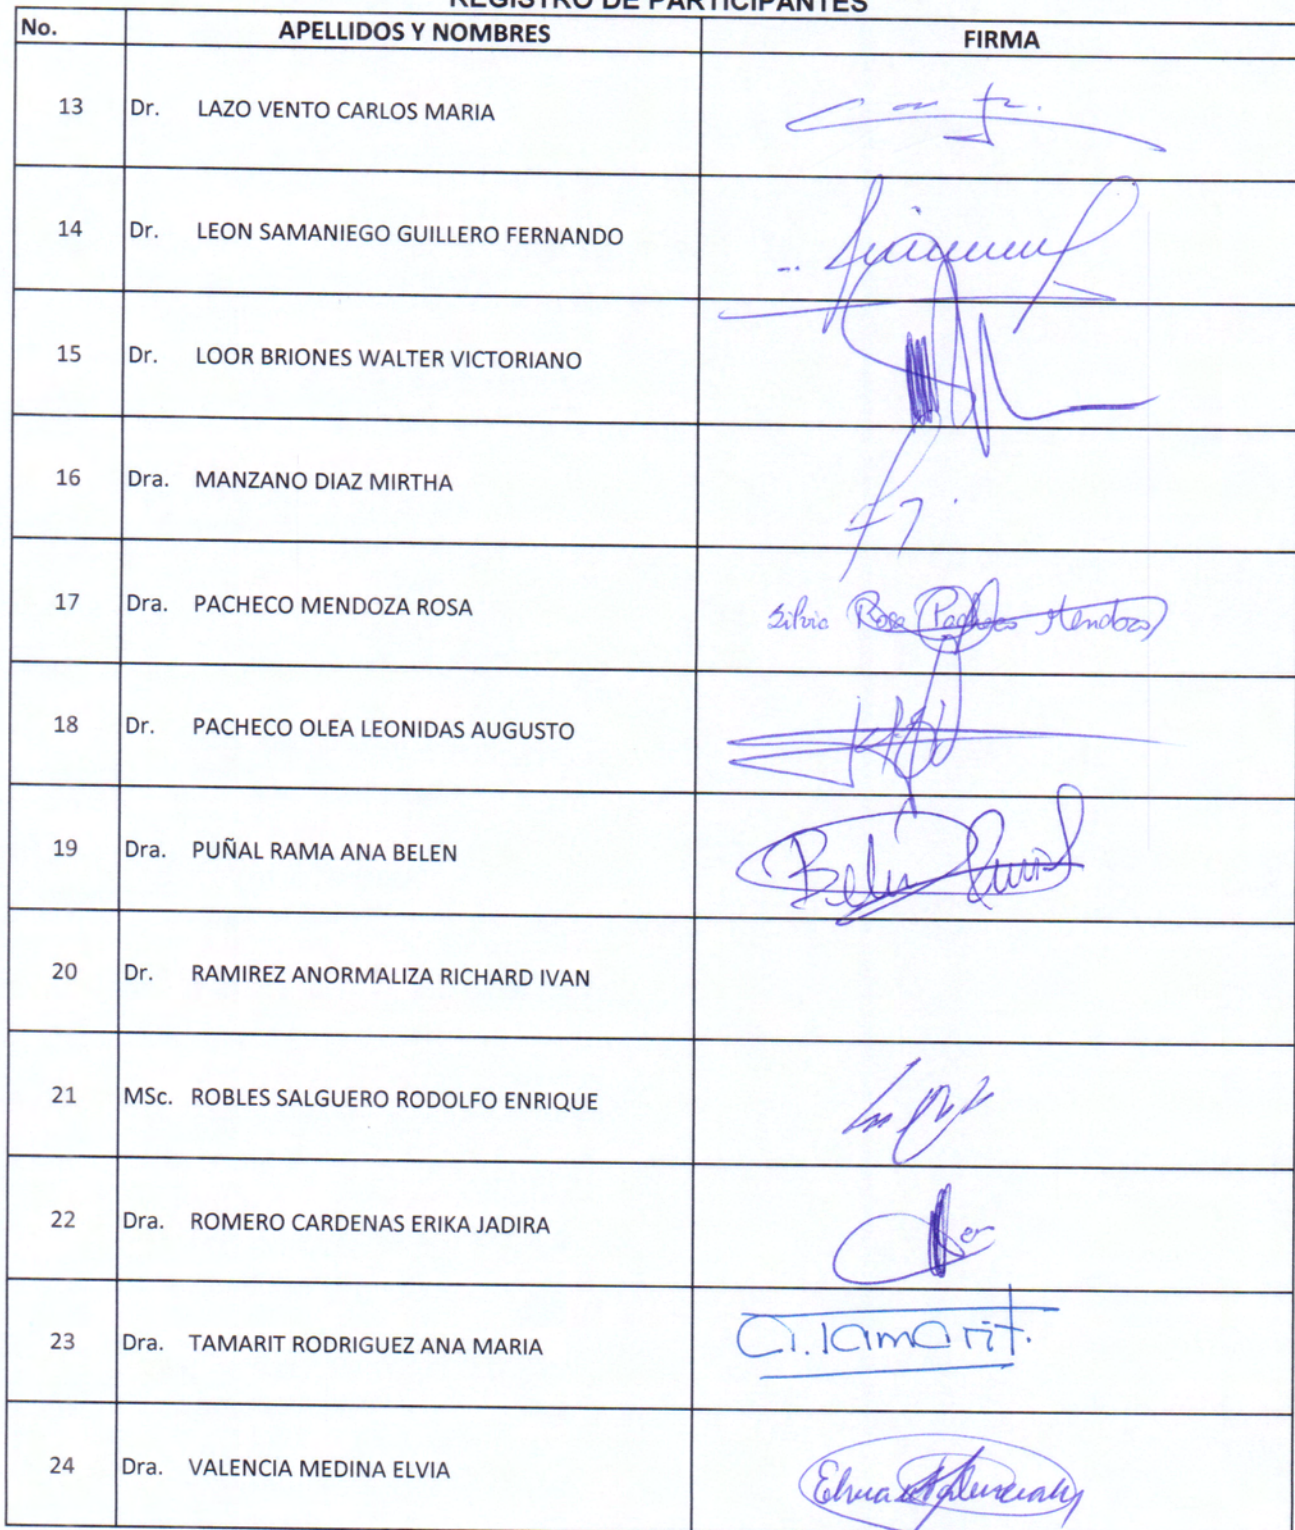 REGISTRO DE PARTICIPANTES
No. APELLIDOS Y NOMBRES FIRMA
13 Dr. LAZO VENTO CARLOS MARIA
14 Dr. LEON SAMANIEGO GUILLERO FERNANDO
15 Dr. LOOR BRIONES WALTER VICTORIANO
16 Dra. MANZANO DIAZ MIRTHA
17 Dra. PACHECO MENDOZA ROSA Silvia Rosa Pacheco Mendoza
18 Dr. PACHECO OLEA LEONIDAS AUGUSTO
19 Dra. PUÑAL RAMA ANA BELEN Belén Puñal
20 Dr. RAMIREZ ANORMALIZA RICHARD IVAN
21 MSc. ROBLES SALGUERO RODOLFO ENRIQUE
22 Dra. ROMERO CARDENAS ERIKA JADIRA
23 Dra. TAMARIT RODRIGUEZ ANA MARIA A. Tamarit.
24 Dra. VALENCIA MEDINA ELVIA Elvia